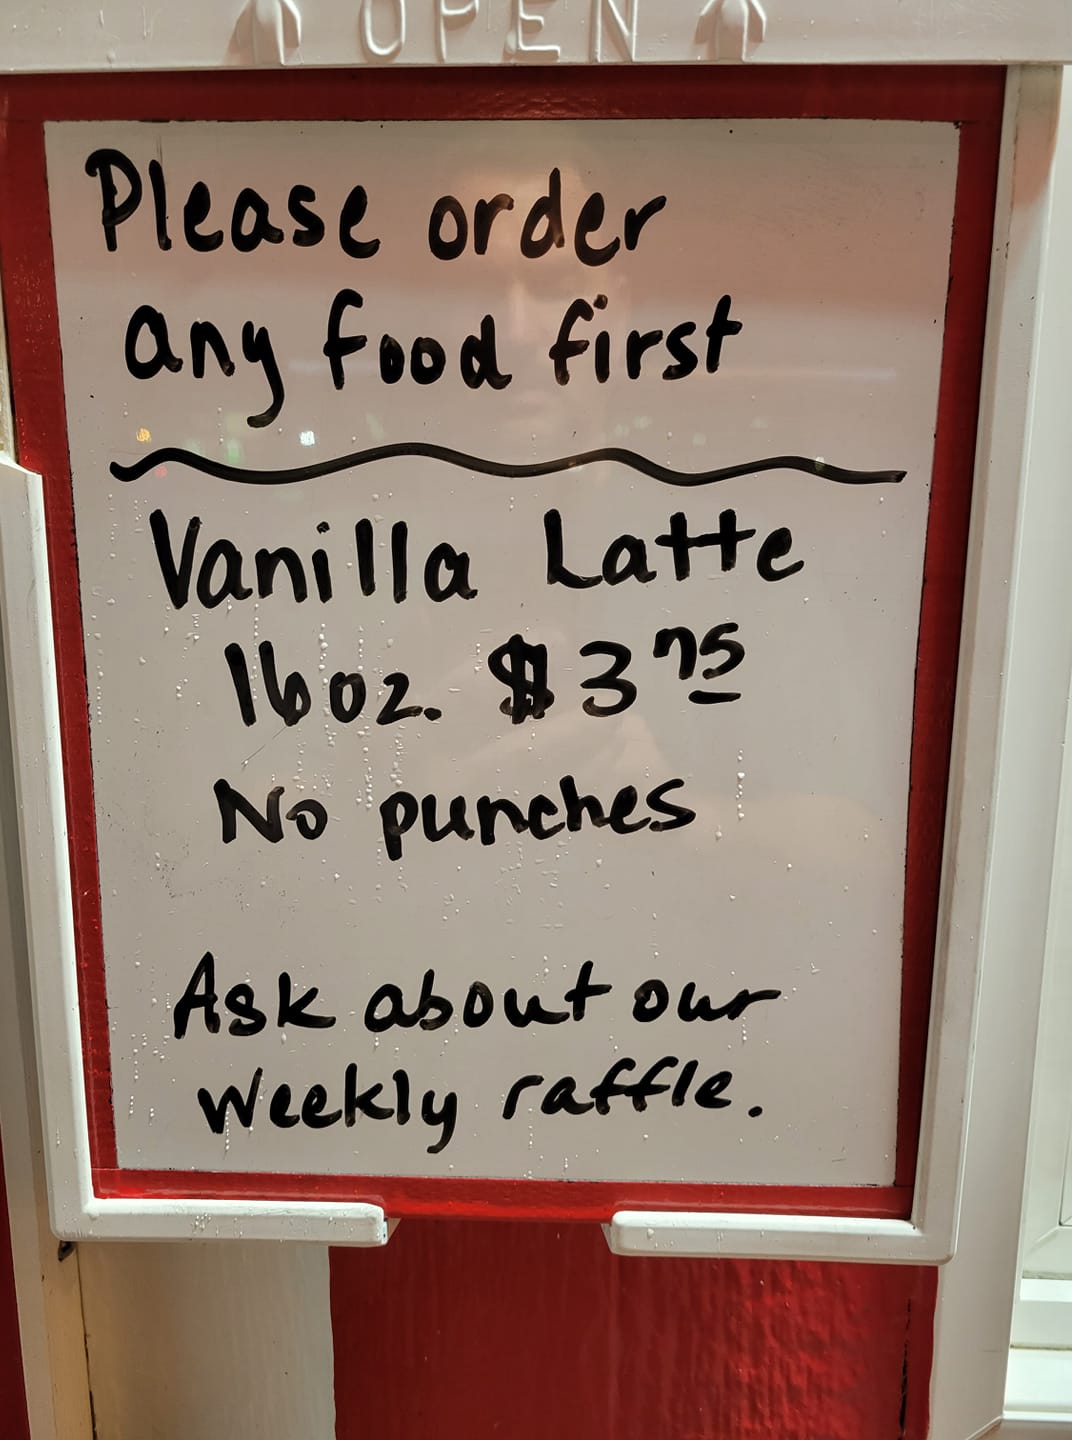 ↑ OPEN ↑
Please order
any food first
Vanilla Latte
16oz. $3 75
No punches
Ask about our
weekly raffle.